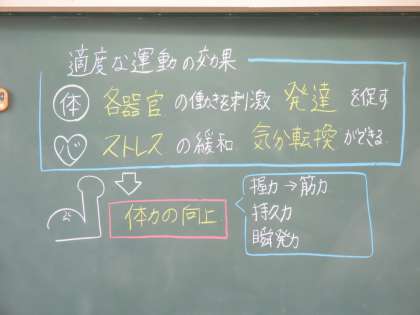 適度な運動の効果
体 各器官の働きを刺激 発達を促す
心 ストレスの緩和 気分転換ができる
体力の向上
握力→筋力
持久力
瞬発力